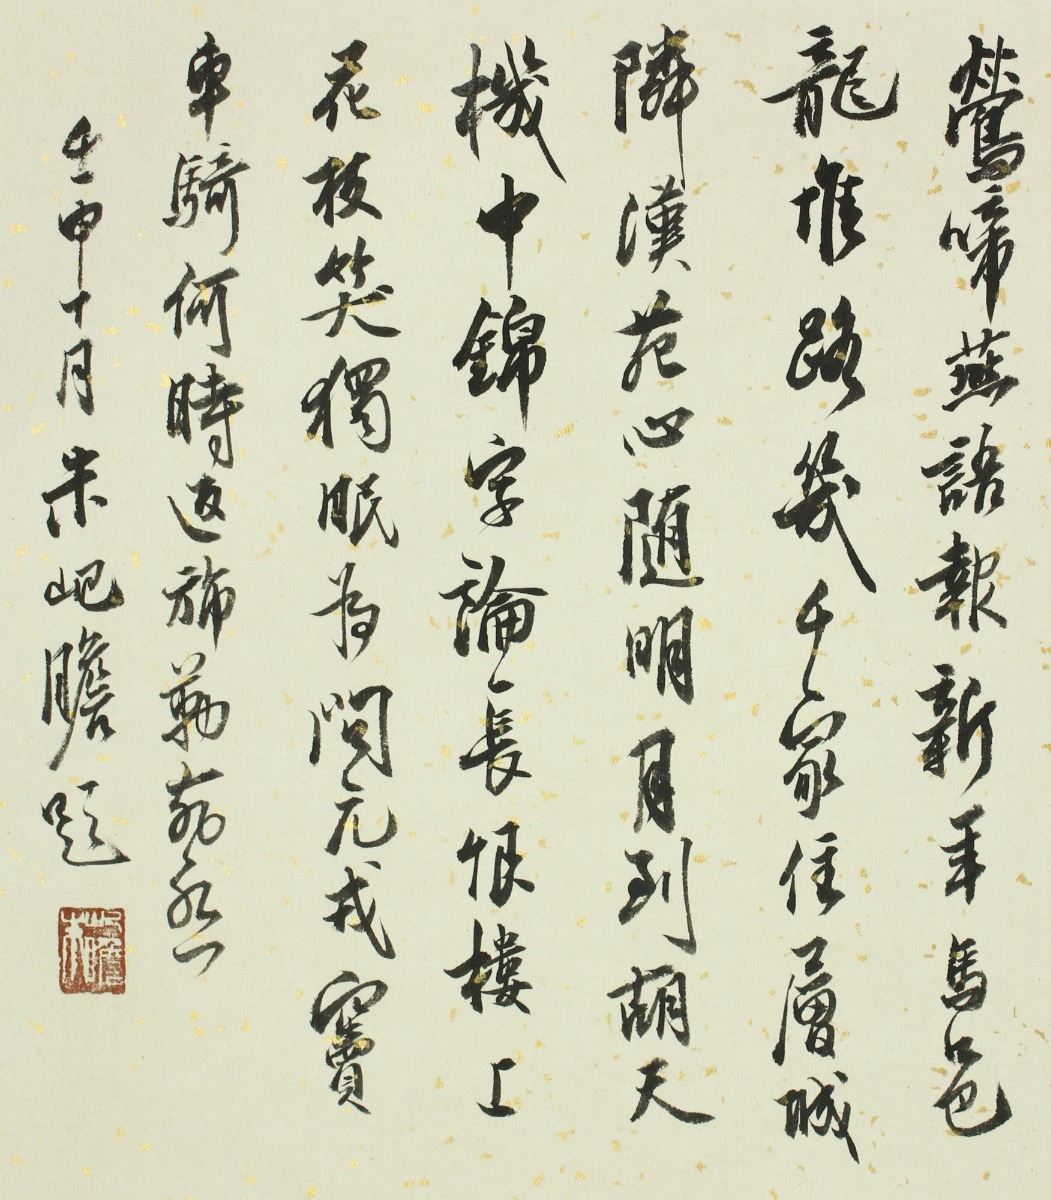 鶯啼燕語報新年馬邑
龍堆路幾千家住層城
隣漢苑心随明月到胡天
機中錦字論長恨樓上
花枝笑獨眠為問元戎竇
車騎何時返旆勒燕然
壬申十月朱屺瞻題
朱屺瞻